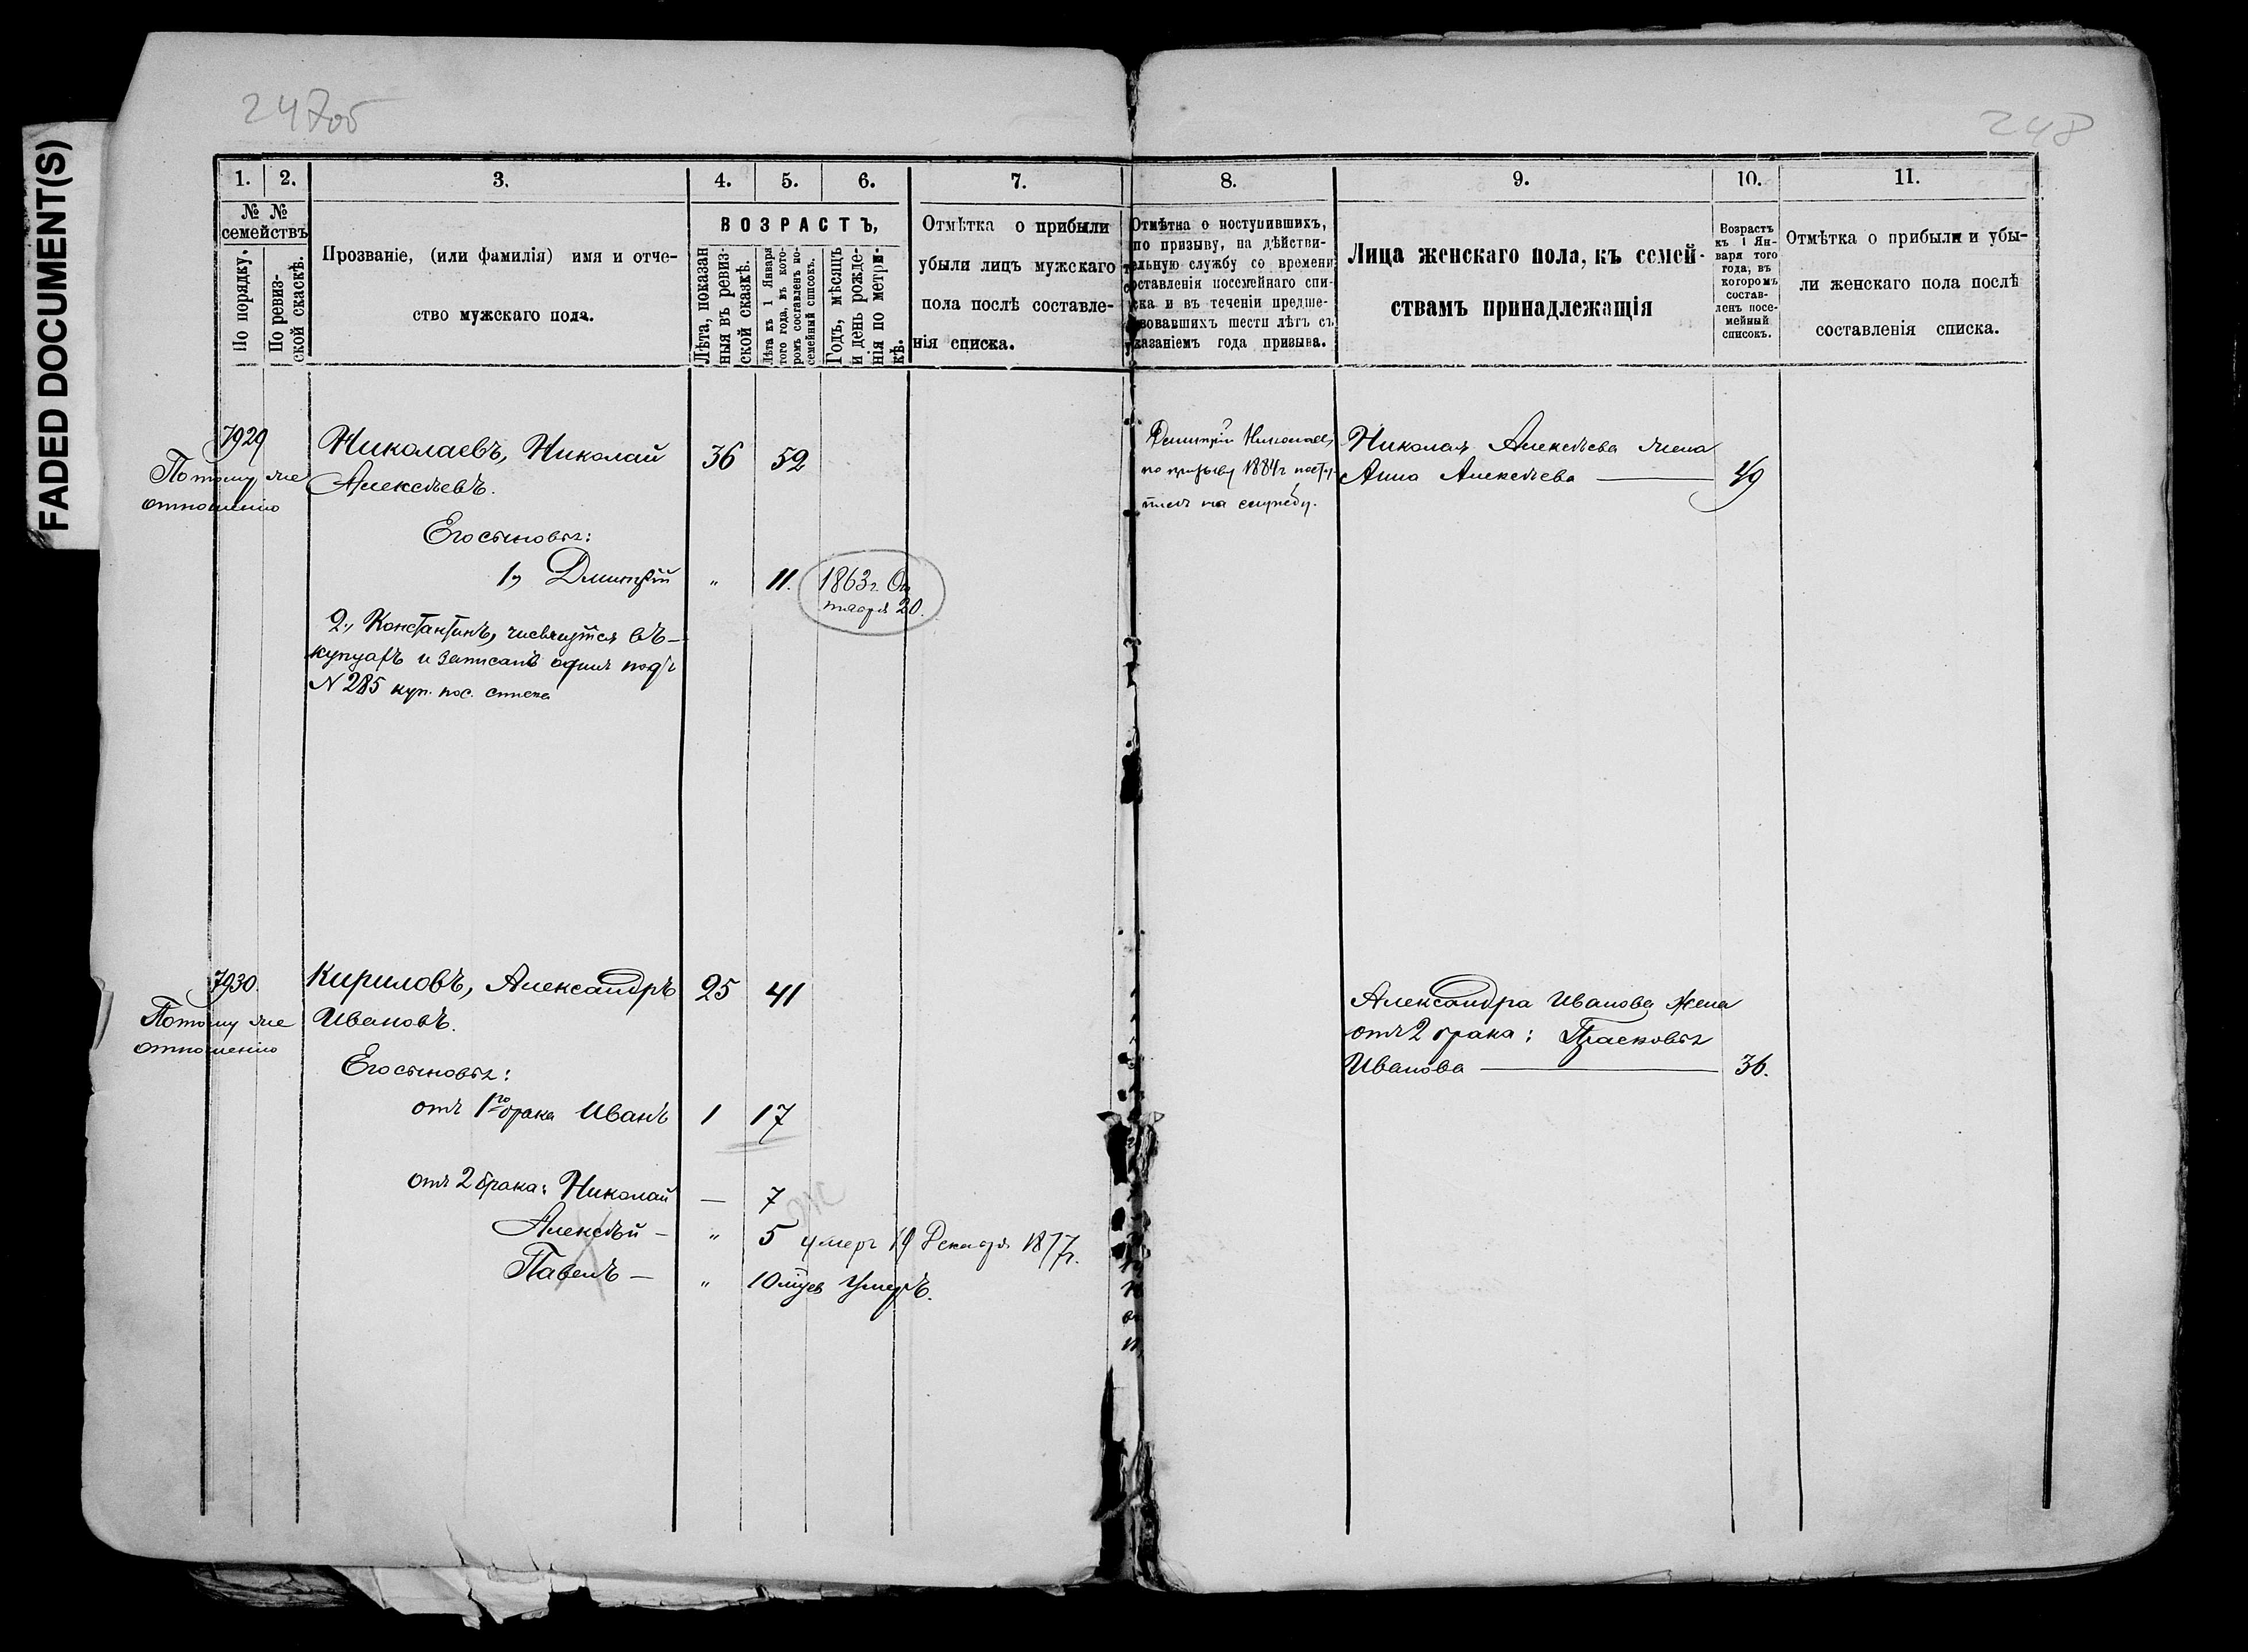 FADED DOCUMENT(S)
247об
248
1. 2. 3. 4. 5. 6. 7. 8. 9. 10. 11.
№ №
семействъ
По порядку.
По ревиз-
ской скаскѣ.
Прозваніе, (или фамилія) имя и отче-
ство мужскаго пола.
ВОЗРАСТЪ,
Лѣта, показан
ныя въ ревиз-
ской сказкѣ.
Лѣта къ 1 Января
того года, въ кото-
ромъ составленъ по-
семейный списокъ.
Годъ, мѣсяцъ
и день рожде-
нія по метри-
кѣ.
Отмѣтка о прибыли
убыли лицъ мужскаго
пола послѣ составле-
нія списка.
Отмѣтка о поступившихъ,
по призыву, на дѣйстви-
тельную службу со времени
составленія посемейнаго спи-
ска и въ теченіи предше-
ствовавшихъ шести лѣтъ съ
указаніемъ года призыва.
Лица женскаго пола, къ семей-
ствамъ принадлежащія
Возрастъ
къ 1 Ян-
варя того
года, въ
которомъ
состав-
ленъ посе-
мейный
списокъ.
Отмѣтка о прибыли и убы-
ли женскаго пола послѣ
составленія списка.
7929
Потому же
отношенію
Николаевъ, Николай 36 52
Алексѣевъ.
Его сыновья:
1, Дмитрій " 11. 1863г. Ок
тября 20.
2, Константинъ, числится въ
купцахъ и записанъ одинъ подъ
N 285 куп. пос. списка
Дмитрій Николаевъ
по призыву 1884г посту-
пилъ на службу.
Николая Алексѣева жена
Анна Алексѣева 49
7930.
Потому же
отношенію
Кириловъ, Александръ 25 41
Ивановъ.
Его сыновья:
отъ 1го брака Иванъ 1 17
отъ 2 брака: Николай — 7
Алексѣй — " 5 умеръ 19 Декабря 1877г.
Павелъ — " 10 мѣсяц Умеръ.
Александра Иванова жена
отъ 2 брака: Прасковья
Иванова 36.